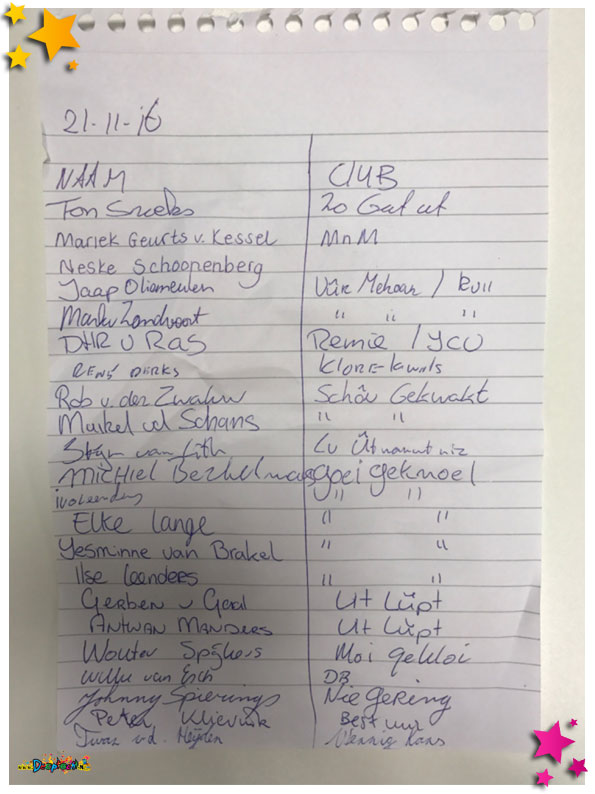 21-11-16
NAAM CLUB
Ton Zo Gat ut
Mariek Geurts v. Kessel MnM
Neske Schoonenberg
Jaap Oliemeulen Vur Mekaar /
Zandvoort " " "
DHR v RAS Remie / JCV
RENÉ DERKS KLORE-kwats
Rob v.d. Schôu Gekwakt
Maikel vd Schans " "
van Lith Cv
MICHIEL goei geknoel
" "
Elke Lange " "
Yesminne van Brakel " "
Ilse Leenders " "
Gerben v Gaal Ut Lüpt
ANTWAN MANDERS Ut Lüpt
Wouter Spijkers Moi gekloi
Willie van Esch DB
Johnny Spierings Nie gering
Peter Bestuur
v.d. Heijden